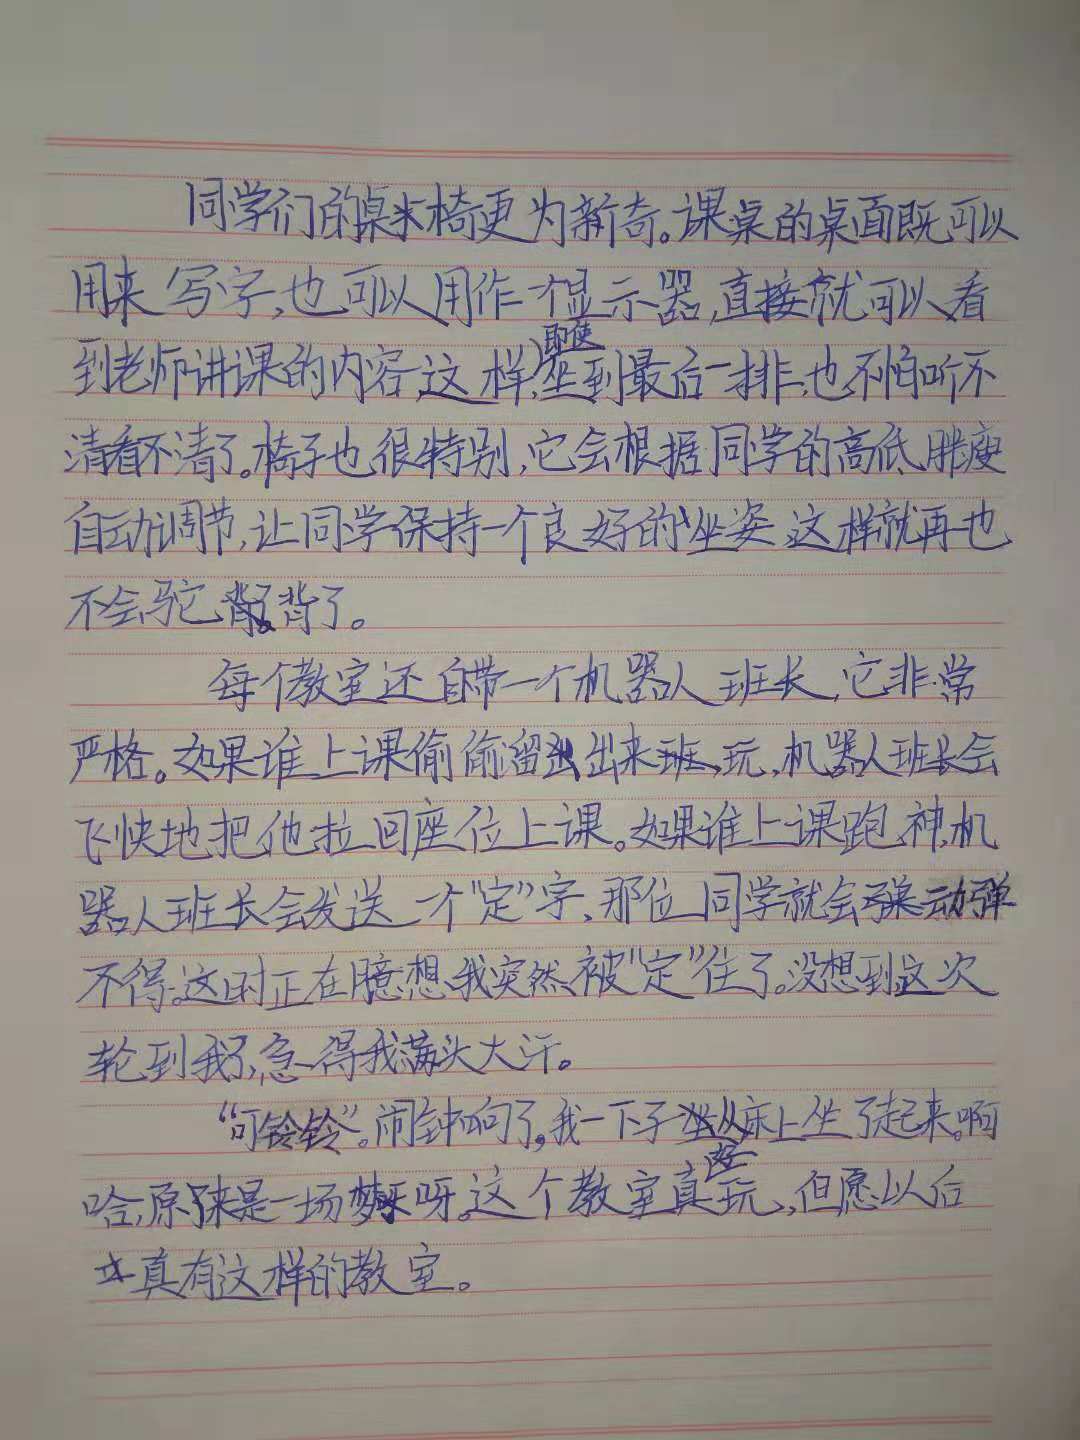 同学们的桌椅更为新奇。课桌的桌面既可以
用来写字,也可以用作一个显示器,直接就可以看
到老师讲课的内容,这样,即使坐到最后一排,也不怕听不
清看不清了。椅子也很特别,它会根据同学的高低胖瘦
自动调节,让同学保持一个良好的坐姿,这样就再也
不会驼背了。
每个教室还自带一个机器人班长,它非常
严格。如果谁上课偷偷溜出来玩,机器人班长会
飞快地把他拉回座位上课。如果谁上课跑神,机
器人班长会发送一个“定”字,那位同学就会动弹
不得。这时正在臆想,我突然被“定”住了。没想到这次
轮到我了,急得我满头大汗。
“叮铃铃”。闹钟响了,我一下子从床上坐了起来。啊
哈,原来是一场梦呀。这个教室真好玩,但愿以后
真有这样的教室。